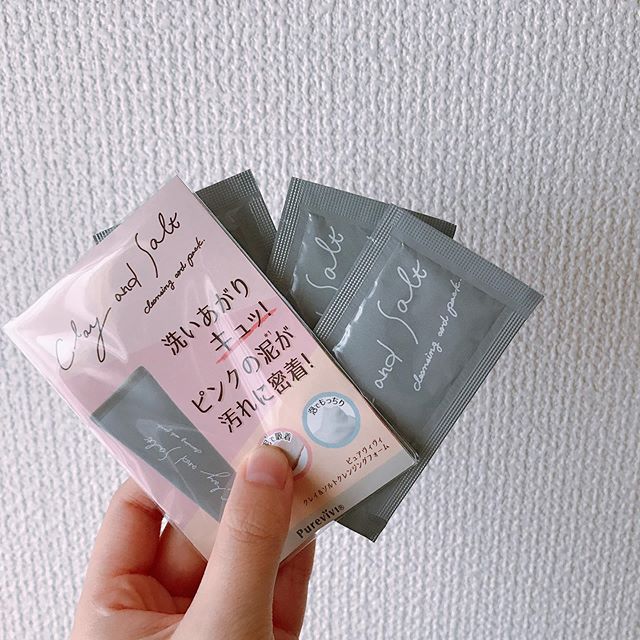 Clay and Salt
cleansing and pack.
洗いあがり
キュッ!
ピンクの泥が
汚れに密着!
泡でもっちり
ピュアヴィヴィ
クレイ&ソルトクレンジングフォーム
Purevivi®
and Salt
cleansing and pack.
Salt
and Salt
cleansing and pack.